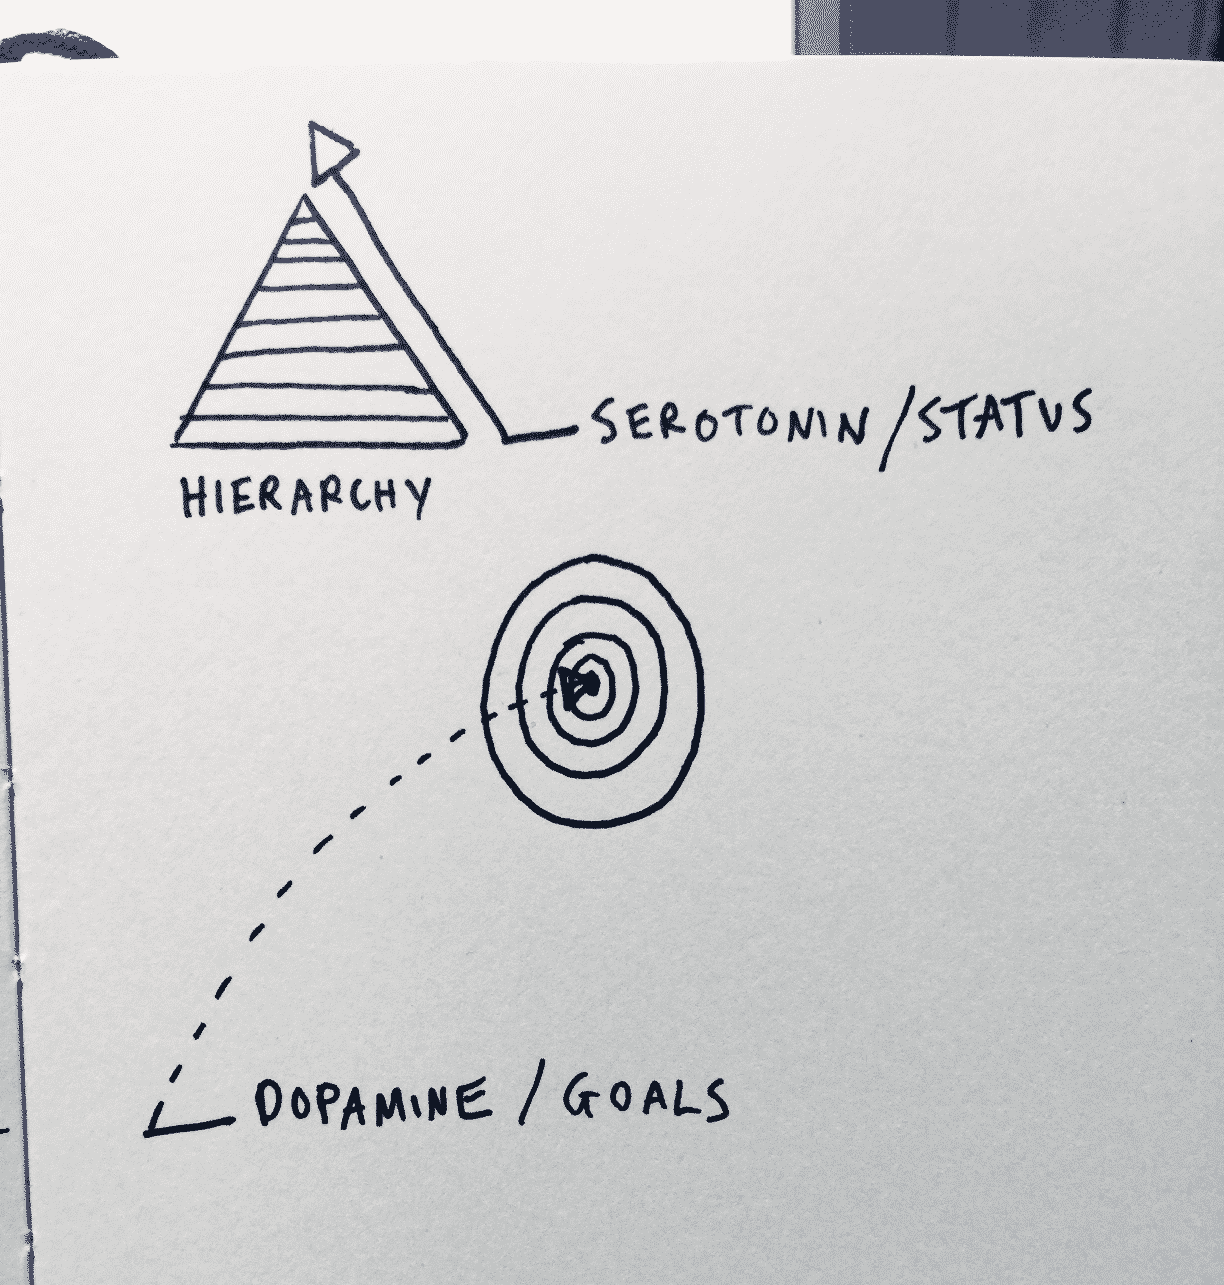 SEROTONIN/STATUS
HIERARCHY
DOPAMINE/GOALS